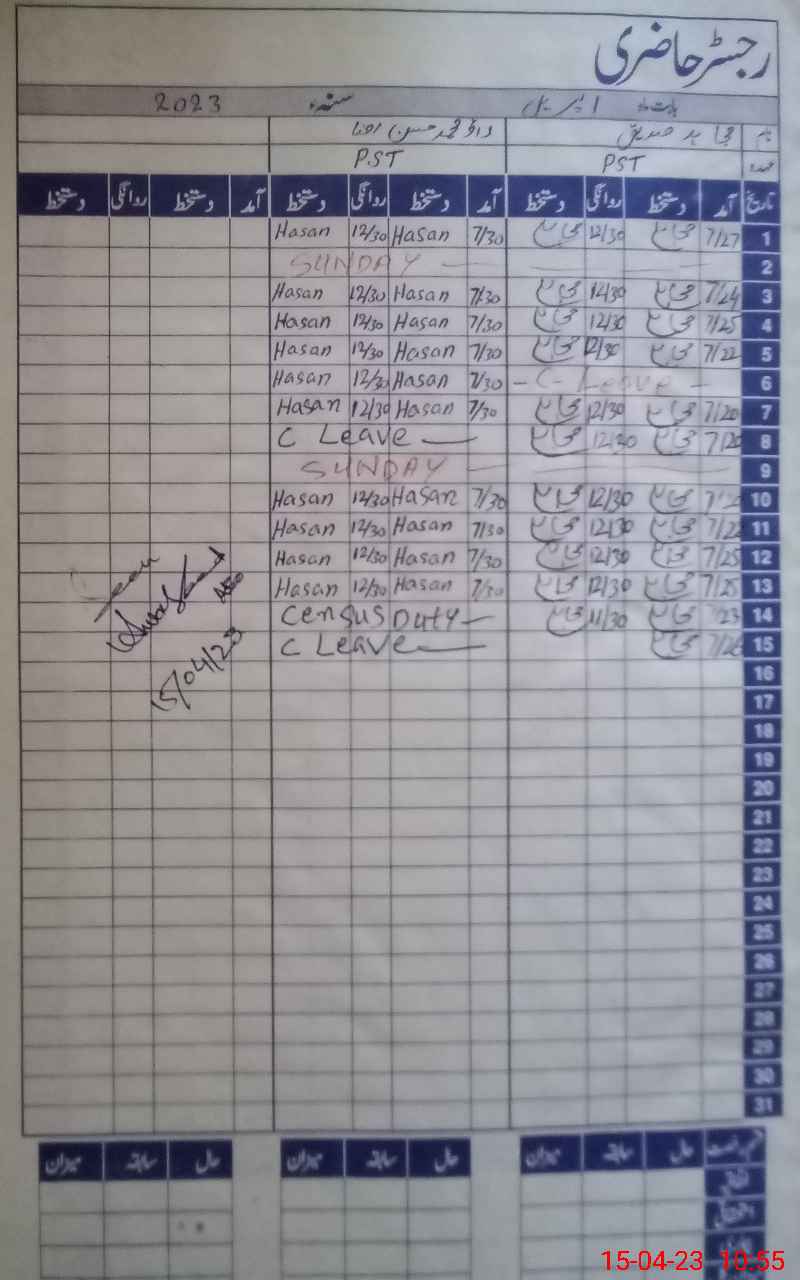 رجسٹر حاضری
بابت ماہ اپریل سنہء 2023
نام مجاہد صدیق محمد حسن رضا
عہدہ PST P.ST
تاریخ آمد دستخط روانگی دستخط آمد دستخط روانگی دستخط آمد دستخط روانگی دستخط
1 7/27 12/30 7/30 Hasan 12/30 Hasan
2 SUNDAY
3 7/24 12/30 7/30 Hasan 12/30 Hasan
4 7/25 12/30 7/30 Hasan 12/30 Hasan
5 7/22 12/30 7/30 Hasan 12/30 Hasan
6 - C- Leave - 7/30 Hasan 12/30 Hasan
7 7/20 12/30 7/30 Hasan 12/30 Hasan
8 7/20 12/30 C Leave —
9 SUNDAY —
10 12/30 7/30 Hasan 12/30 Hasan
11 7/22 12/30 7/30 Hasan 12/30 Hasan
12 7/25 12/30 7/30 Hasan 12/30 Hasan
13 7/25 12/30 7/30 Hasan 12/30 Hasan
14 11/30 Census Duty —
15 7/26 C Leave —
AEO
15/04/23
16
17
18
19
20
21
22
23
24
25
26
27
28
29
30
31
قسم رخصت حال سابقہ میزان حال سابقہ میزان حال سابقہ میزان
اتفاقی
15-04-23 10:55